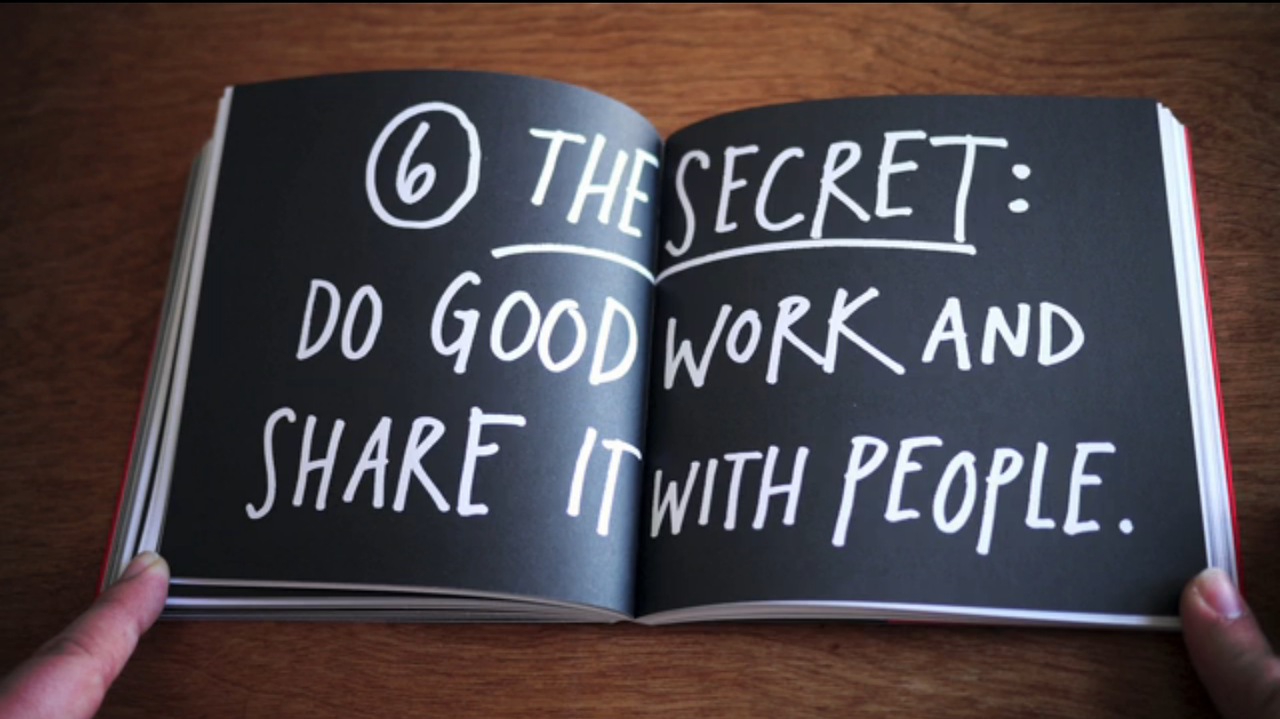 6 THE SECRET:
DO GOOD WORK AND
SHARE IT WITH PEOPLE.